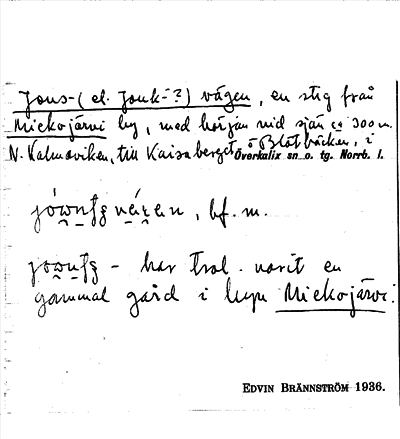 Jous- (el. Jouk- ?) vägen, en stig från
Mickojärvi by, med början vid sjön ca 300 m.
N. Kalmaviken, till Kaisaberget ö Blötbäcken, i
Överkalix sn o. tg. Norrb. l.
bf. m.
– har trol. varit en
gammal gård i byn Mickojärvi.
EDVIN BRÄNNSTRÖM 1936.